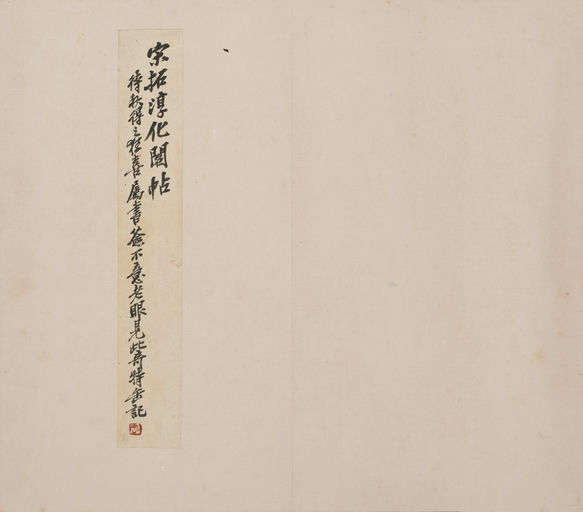 宋拓淳化閣帖
待秋得之狂喜属書簽不意老眼見此奇特缶記